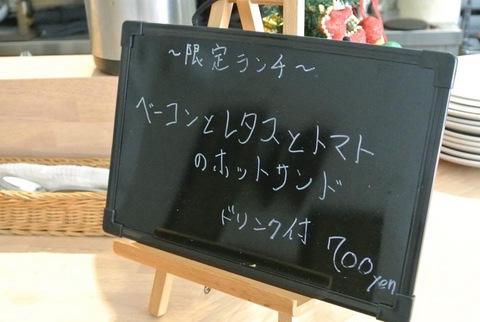 ～限定ランチ～
ベーコンとレタスとトマト
のホットサンド
ドリンク付 700yen